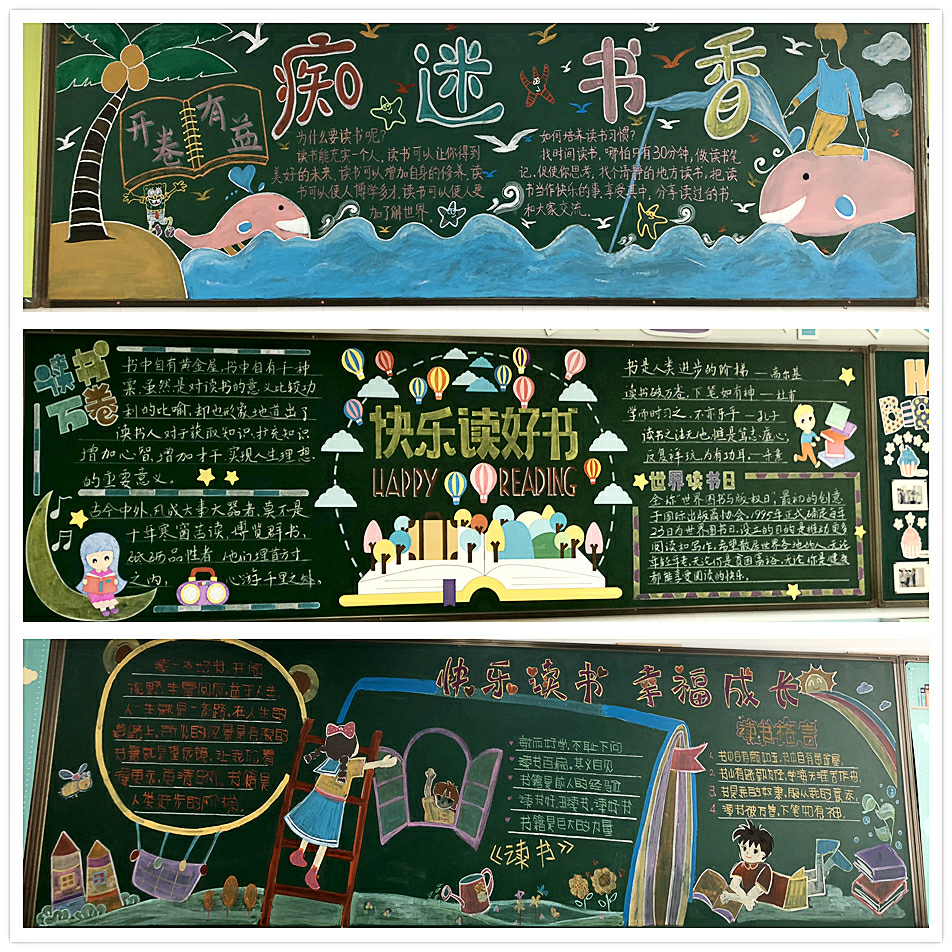 痴迷书香
开卷
有益
为什么要读书呢？
读书能充实一个人，读书可以让你得到
美好的未来，读书可以增加自身的修养，读
书可以使人博学多才，读书可以使人更
加了解世界。
如何培养读书习惯？
找时间读书，哪怕只有30分钟，做读书笔
记，促使你思考，找个清静的地方读书，把读
书当作快乐的事，享受其中，分享读过的书，
和大家交流。
读书
万卷
书中自有黄金屋，书中自有千种
粟，虽然是对读书的意义比较功
利的比喻，却也形象地道出了
读书人对于获取知识，扩充知识
增加心智，增加才干，实现人生理想
的重要意义。
古今中外，凡成大事大器者，莫不是
十年寒窗苦读，博览群书，
砥砺品性者，他们埋首方寸
之内，心游千里之外。
快乐读好书
HAPPY READING
书是人类进步的阶梯 — 高尔基
读书破万卷，下笔如有神 — 杜甫
学而时习之，不亦乐乎 — 孔子
读书之法无他，惟是笃志虚心，
反复详玩，为有功耳。—朱熹
世界读书日
全称"世界图书与版权日，最初的创意
于国际出版商协会。1995年正式确定每年
23日为世界图书日，设立的目的是推动更多
阅读和写作，希望散居世界各地的人，无论
年轻，无论你是贫困富裕，无论你是健康
都能享受阅读的快乐。
快乐读书 幸福成长
读一本好书，开阔
视野，丰富阅历，益于人生
人一生就是一条路，在人生的
道路上，所见的风景是有限的
书籍就是望远镜，让我们看
得更远，更清晰，书籍是
人类进步的阶梯。
敏而好学，不耻下问
读书百遍，其义自见
书籍是前人的经验
读书好，多读书，读好书
书籍是巨大的力量
《读书》
读书格言
1. 书中自有颜如玉，书中自有黄金屋。
2. 书山有路勤为径，学海无涯苦作舟。
3. 书是我的奴隶，服从我的意志。
4. 读书破万卷，下笔如有神。